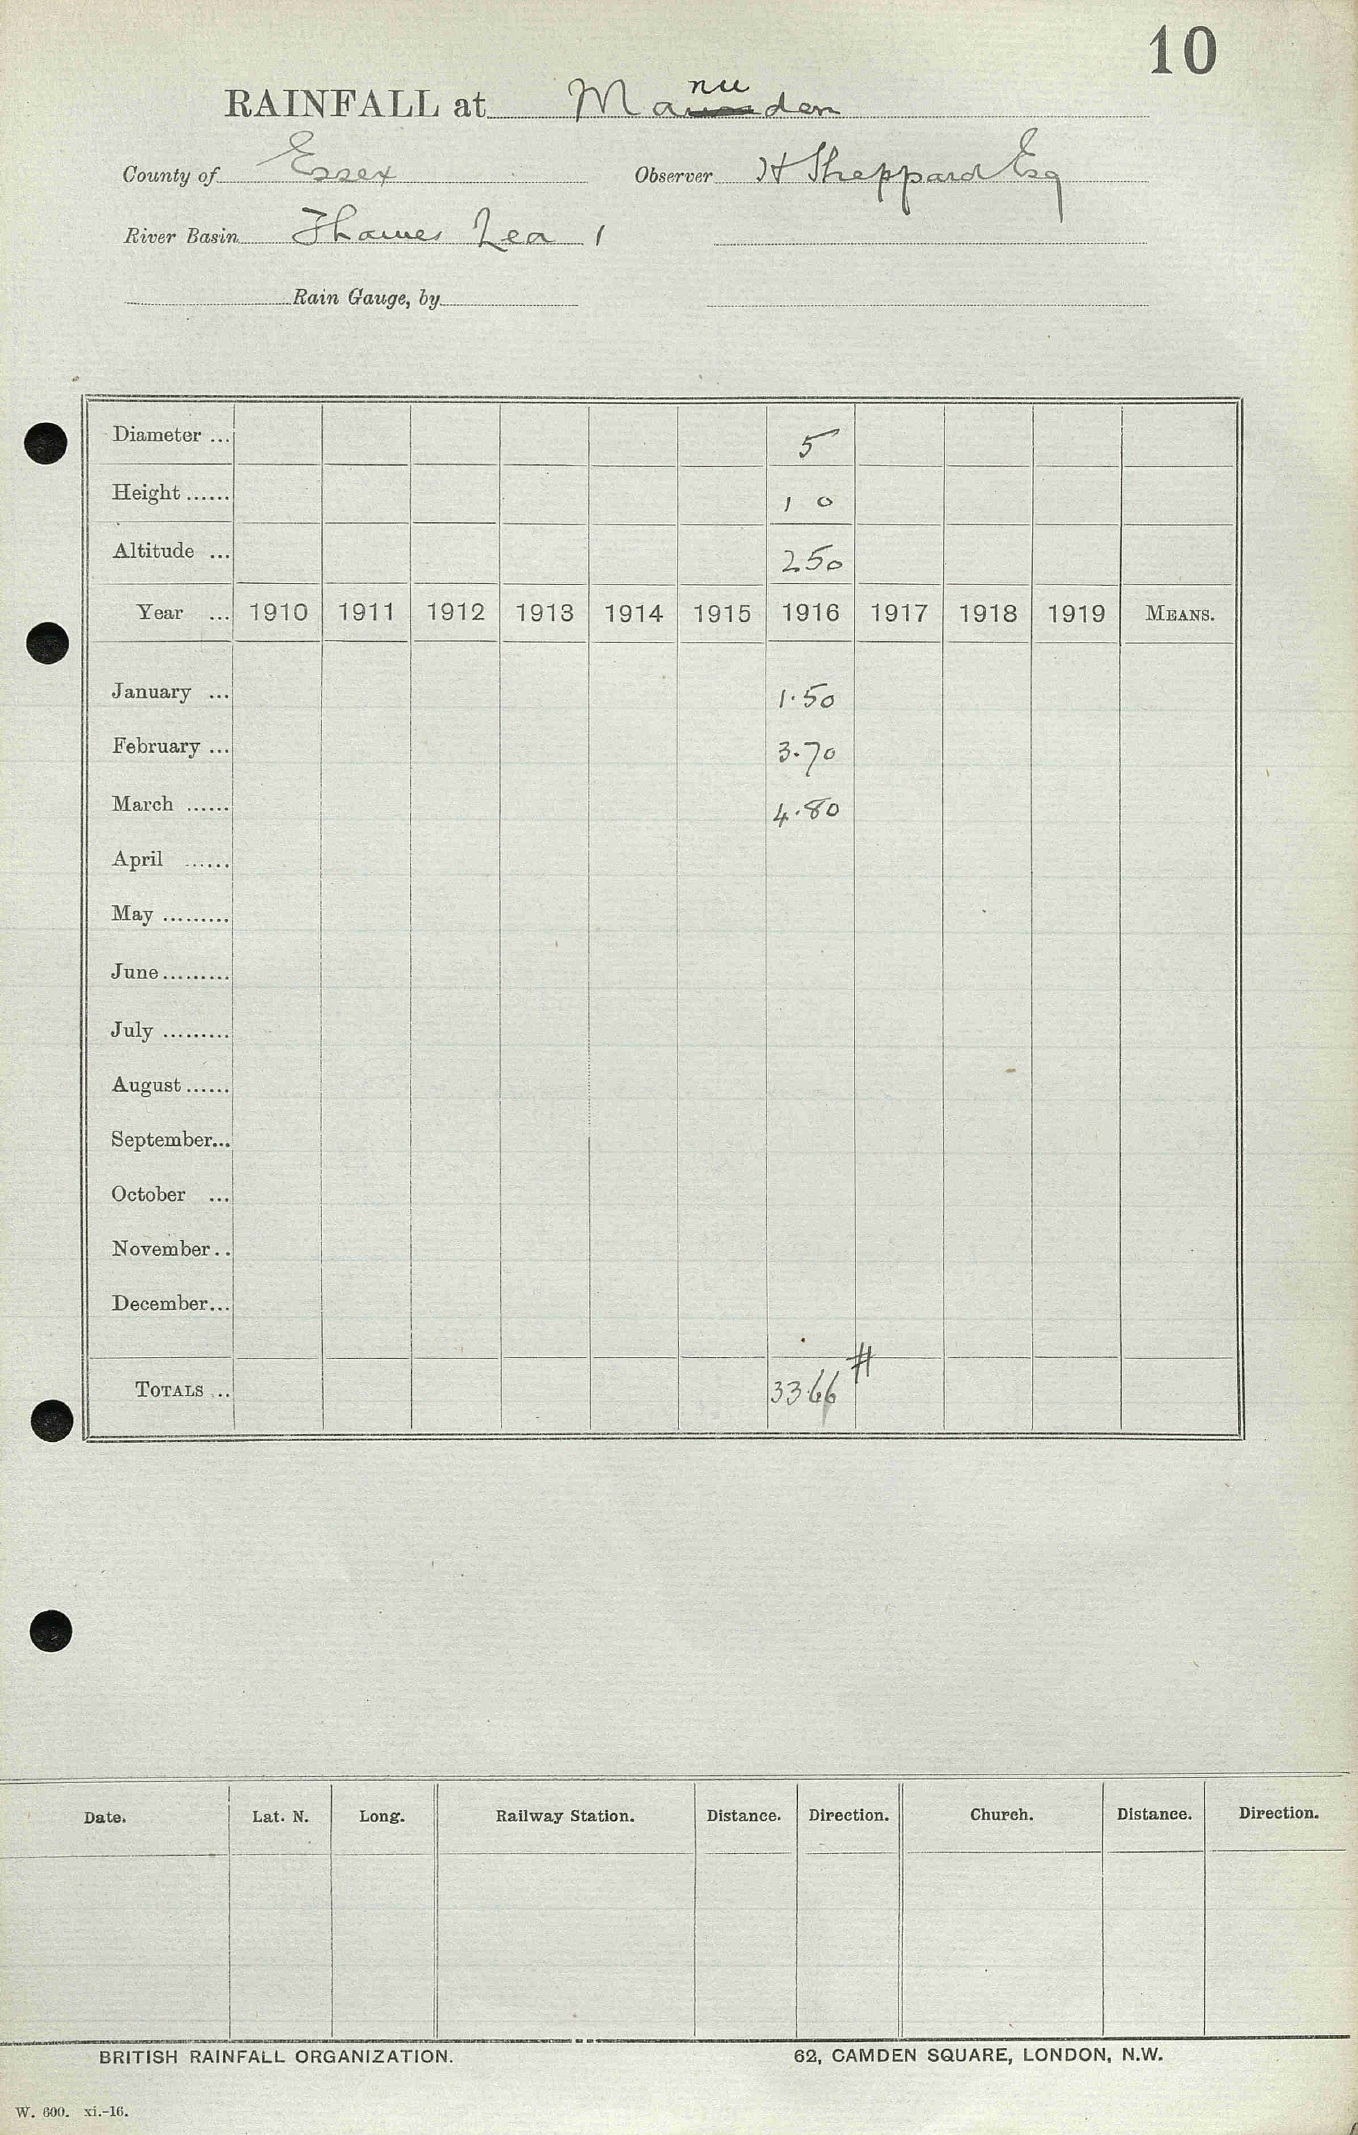 10
RAINFALL at Manuden
County of Essex Observer H Sheppard Esq
River Basin Thames Lea 1
Rain Gauge, by
Diameter ... 5
Height ...... 10
Altitude ... 250
Year ... 1910 1911 1912 1913 1914 1915 1916 1917 1918 1919 MEANS.
January ... 1.50
February ... 3.70
March ...... 4.80
April ......
May .........
June .........
July .........
August ......
September...
October ...
November..
December...
TOTALS ... 33.66 #
Date. Lat. N. Long. Railway Station. Distance. Direction. Church. Distance. Direction.
BRITISH RAINFALL ORGANIZATION. 62, CAMDEN SQUARE, LONDON, N.W.
W. 600. xi.-16.